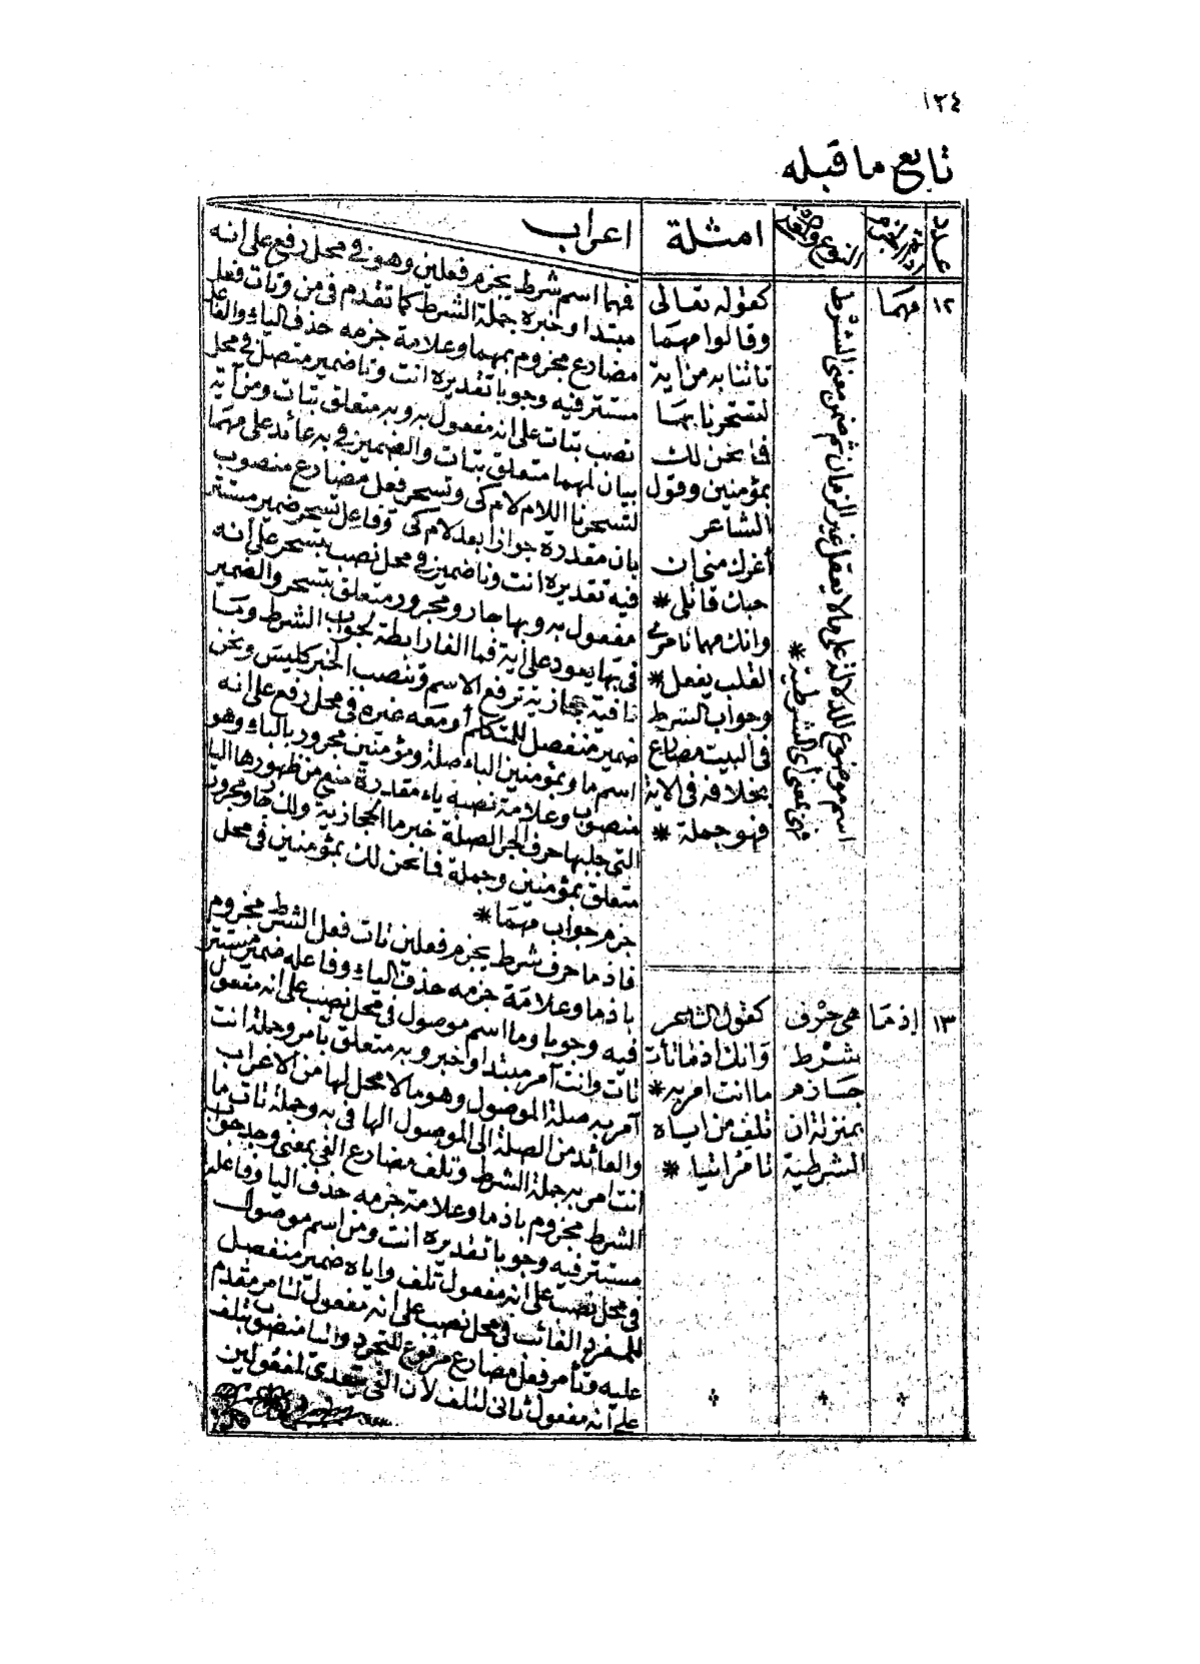 ١٣٤
تابع ما قبله
عدد
أداة الجزم
النوع
امثلة
اعراب
١٢
مهما
اسم موضوع للدلالة على ما لا يعقل غير الزمان ثم ضمن معنى الشرط
فهى بمعنى أى الشرطية *
كقوله تعالى
وقالوا مهما
تاتنا به من آية
لتسحرنا بها
فما نحن لك
بمؤمنين وقول
الشاعر
أغرك منى ان
حبك قاتلى *
وانك مهما تامرى
القلب يفعل *
وجواب الشرط
فى البيت مضارع
بخلافه فى الاية
فهو جملة *
فمهما اسم شرط يجزم فعلين وهو فى محل رفع على انه
مبتدا وخبره جملة الشرط كما تقدم فى من وتات فعل
مضارع مجزوم بمهما وعلامة جزمه حذف الياء والفاعل
مستتر فيه وجوبا تقديره انت ونا ضمير متصل فى محل
نصب بتات على انه مفعول به وبه متعلق بتات ومن آية
بيان لمهما متعلق بتات والضمير فى به عائد على مهما
لتسحرنا اللام لام كى وتسحر فعل مضارع منصوب
بان مقدرة جوازا بعد لام كى وفاعل تسحر ضمير مستتر
فيه تقديره انت ونا ضمير فى محل نصب بتسحر على أنه
مفعول به وبها جار ومجرور متعلق بتسحر والضمير
فى بها يعود على آية فما الفا رابطة لجواب الشرط وما
نافية حجازية ترفع الاسم وتنصب الخبر كليس ونحن
ضمير منفصل للمتكلم أو معه غيره فى محل رفع على انه
اسم ما وبمؤمنين الباء صلة ومؤمنين مجرور بالباء وهو
منصوب وعلامة نصبه ياء مقدرة منع من ظهورها اليا
التى جلبها حرف الجر الصلة خبر ما الحجازية ولك جار ومجرور
متعلق بمؤمنين وجملة فما نحن لك بمؤمنين فى محل
جزم جواب مهما *
١٣
إذما
هى حرف
شرط
جازم
بمنزلة ان
الشرطية
كقول الشاعر
وانك اذما تات
ما انت امر به *
تلف من اياه
تامر اتيا *
فاذ ما حرف شرط يجزم فعلين تات فعل الشرط مجزوم
باذ ما وعلامة جزمه حذف الياء وفاعله ضمير مستتر
فيه وجوبا وما اسم موصول فى محل نصب على انه مفعول
تات وانت آمر مبتدا وخبر وبه متعلق بآمر وجملة انت
آمر به صلة الموصول وهو ما لا محل لها من الاعراب
والعائد من الصلة الى الموصول الها فى به وجملة تات ما
انت امر به جملة الشرط وتلف مضارع الفى بمعنى وجد جواب
الشرط مجزوم باذ ما وعلامة جزمه حذف اليا وفاعله
مستتر فيه وجوبا تقديره انت ومن اسم موصول
فى محل نصب على انه مفعول تلف واياه ضمير منفصل
للمفرد الغائب فى محل نصب على انه مفعول لتامر مقدم
عليه وتأمر فعل مضارع مرفوع للتجرد واتيا منصوب بتلف
على أنه مفعول ثانى لتلف لأن الفى يتعدى لمفعولين